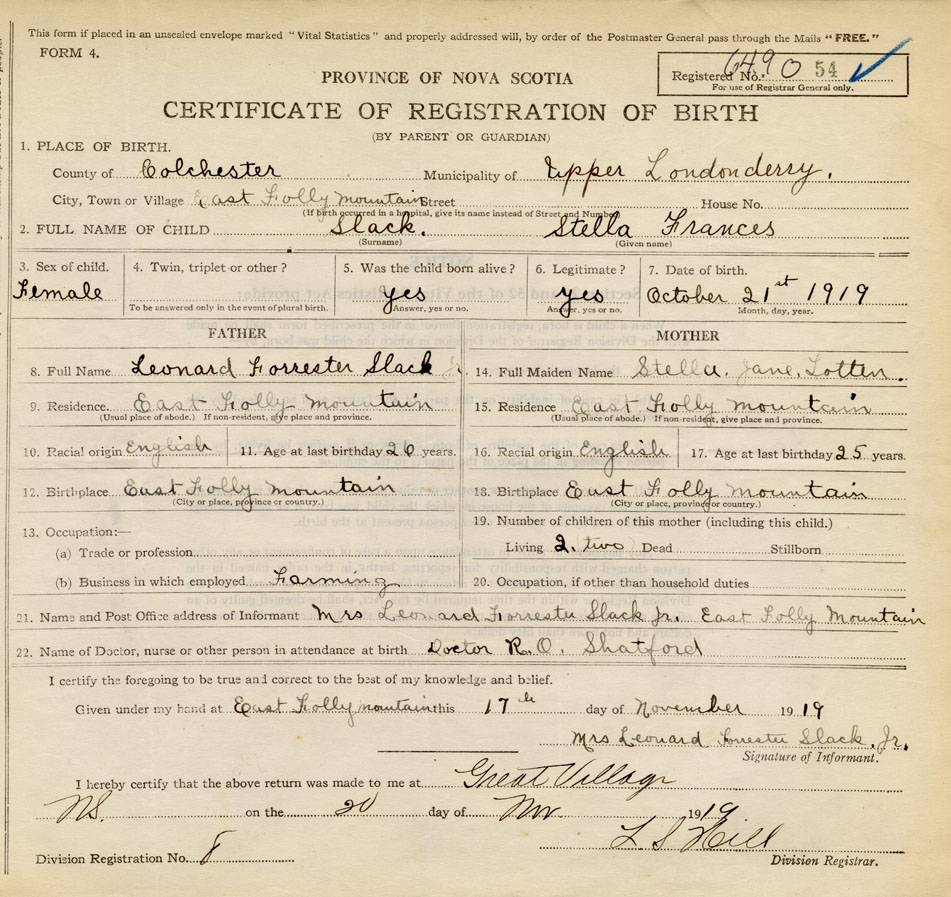 This form if placed in an unsealed envelope marked "Vital Statistics" and properly addressed will, by order of the Postmaster General pass through the Mails "FREE."
FORM 4.
Registered No. 6490 54
For use of Registrar General only.
PROVINCE OF NOVA SCOTIA
CERTIFICATE OF REGISTRATION OF BIRTH
(BY PARENT OR GUARDIAN)
1. PLACE OF BIRTH.
County of Colchester Municipality of Upper Londonderry.
City, Town or Village East Folly Mountain Street House No.
(If birth occurred in a hospital, give its name instead of Street and Number)
2. FULL NAME OF CHILD Slack. Stella Frances
(Surname) (Given name)
3. Sex of child. 4. Twin, triplet or other? 5. Was the child born alive? 6. Legitimate? 7. Date of birth.
Female yes yes October 21st 1919
To be answered only in the event of plural birth. Answer, yes or no. Answer, yes or no. Month, day, year.
FATHER MOTHER
8. Full Name Leonard Forrester Slack Jr. 14. Full Maiden Name Stella. Jane. Totten.
9. Residence. East Folly Mountain 15. Residence East Folly Mountain
(Usual place of abode.) If non-resident, give place and province. (Usual place of abode.) If non-resident, give place and province.
10. Racial origin English 11. Age at last birthday 26 years. 16. Racial origin English 17. Age at last birthday 25 years.
12. Birthplace East Folly Mountain 18. Birthplace East Folly Mountain
(City or place, province or country.) (City or place, province or country.)
13. Occupation:— 19. Number of children of this mother (including this child.)
(a) Trade or profession Living 2. two Dead Stillborn
(b) Business in which employed Farming 20. Occupation, if other than household duties
21. Name and Post Office address of Informant Mrs Leonard Forrester Slack Jr. East Folly Mountain
22. Name of Doctor, nurse or other person in attendance at birth Doctor R.O. Shatford
I certify the foregoing to be true and correct to the best of my knowledge and belief.
Given under my hand at East Folly mountain this 17th day of November 1919
Mrs Leonard Forrester Slack, Jr.
Signature of Informant.
I hereby certify that the above return was made to me at Great Village
NS. on the 20 day of Nov 1919
L S Hill
Division Registration No. 8 Division Registrar.